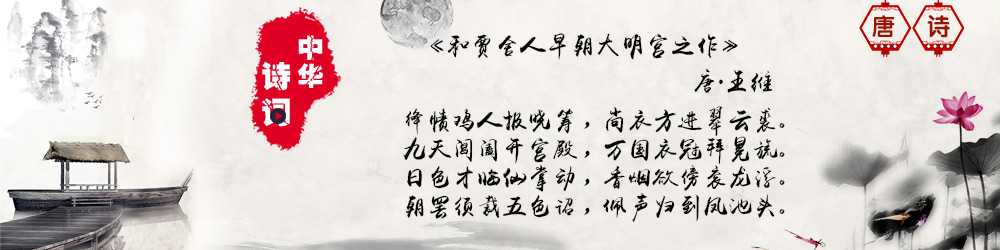 中华
诗词
《和贾舍人早朝大明宫之作》
唐·王维
绛帻鸡人报晓筹，尚衣方进翠云裘。
九天阊阖开宫殿，万国衣冠拜冕旒。
日色才临仙掌动，香烟欲傍衮龙浮。
朝罢须裁五色诏，佩声归到凤池头。
唐诗